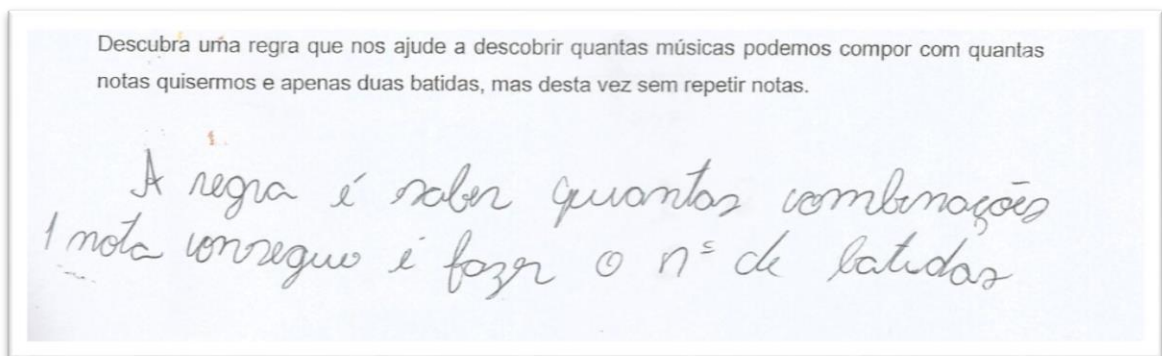 Descubra uma regra que nos ajude a descobrir quantas músicas podemos compor com quantas
notas quisermos e apenas duas batidas, mas desta vez sem repetir notas.
A regra é saber quantas combinações
1 nota consegue e fazer o nº de batidas